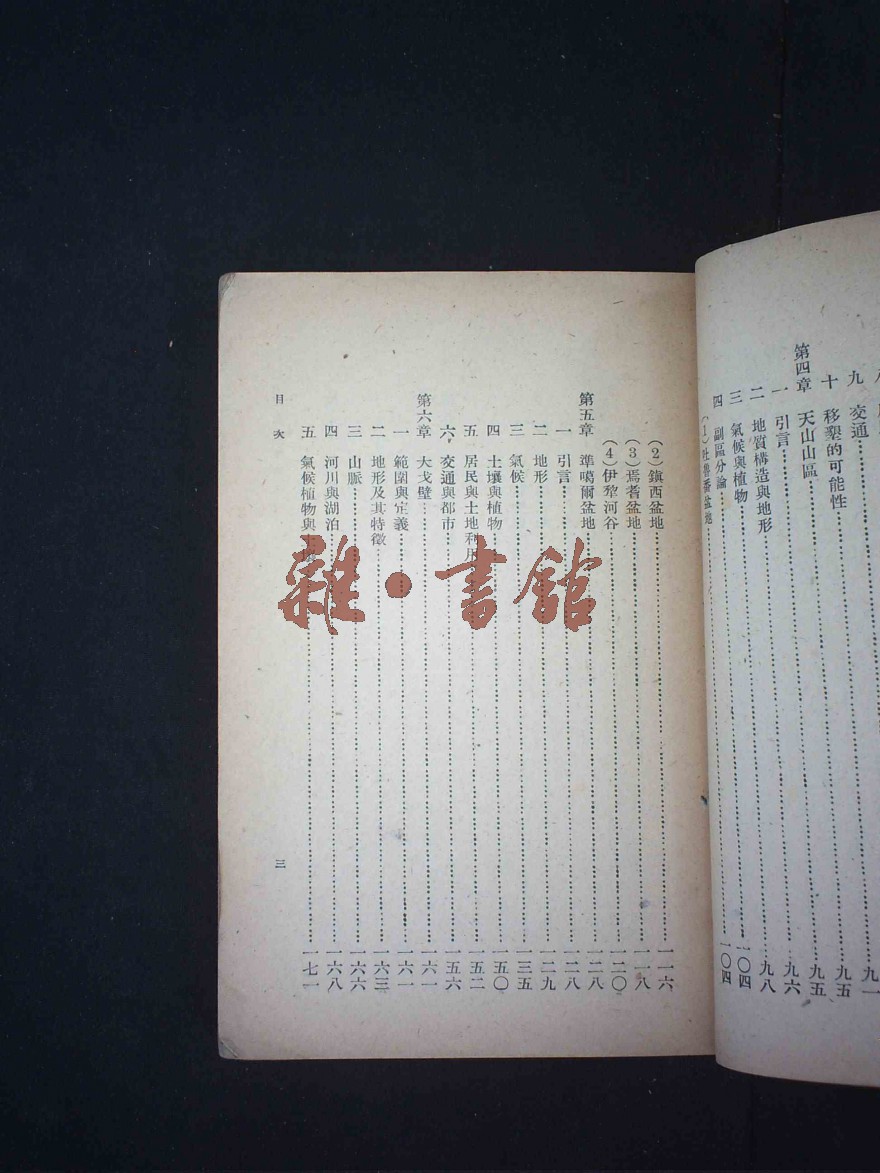 九 交通……九一
十 移墾的可能性……九五
第四章 天山山區……九五
一 引言……九六
二 地質構造與地形……九八
三 氣候與植物……一〇四
四 副區分論……一〇四
(1)吐魯番盆地……
(2)鎮西盆地……一一六
(3)焉耆盆地……一一八
(4)伊犂河谷……一二〇
第五章 準噶爾盆地……一二八
一 引言……一二八
二 地形……一二九
三 氣候……一三五
四 土壤與植物……一五〇
五 居民與土地利用……一五二
六 交通與都市……一五六
第六章 大戈壁……一六一
一 範圍與定義……一六一
二 地形及其特徵……一六三
三 山脈……一六六
四 河川與湖泊……一六八
五 氣候植物與……一七一
目次
三
雜·書館